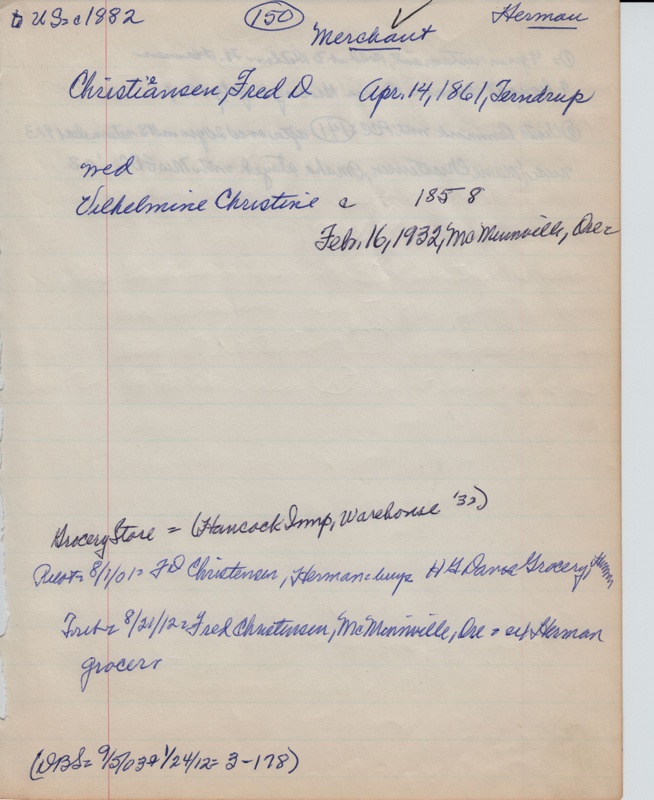 to US=c1882 (150) Herman
Merchant
Christiansen, Fred D Apr. 14, 1861, Terndrup
e
wed
Vilhelmine Christine c 1858
Feb. 16, 1932, McMinnville, Ore
Grocery Store = (Hancock Imp, Warehouse '32)
Pilot= 8/1/01= FD Christensen, Herman=buys H G Grocery, Herman
Trib= 8/21/12= Fred Christensen, McMinnville, Ore = ex Herman
grocer
(DBS= 9/5/03 1/24/12= 3-178)